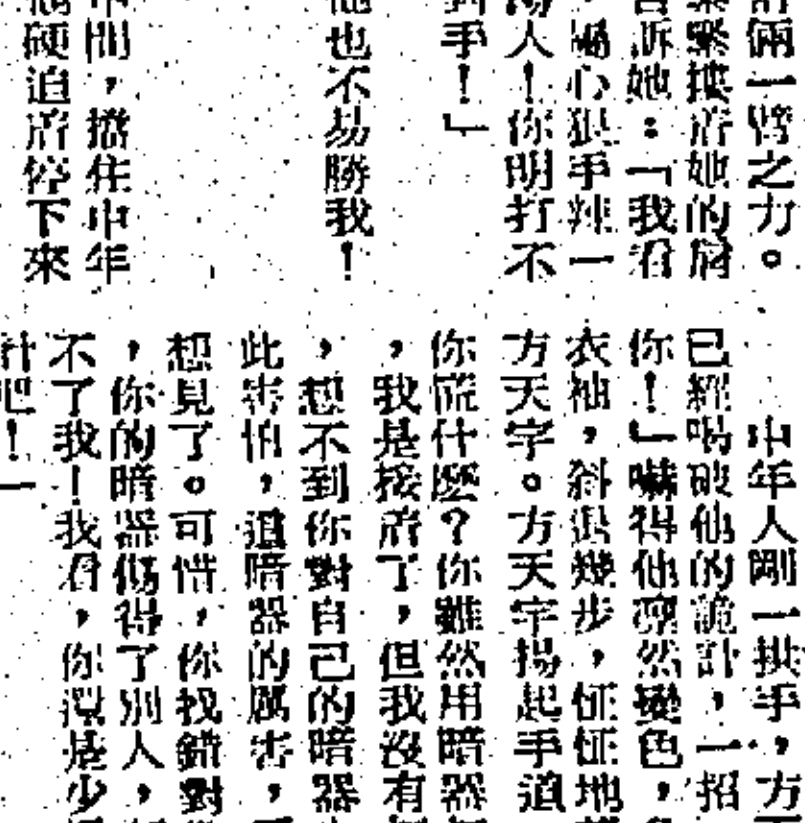 倆一臂之力。
緊緊摟着她的肩
訴她：「我看
心狠手辣一
人！你明打不
手！」
也不易勝我！
間，擋住中年
硬迫着停下來
中年人剛一拱手，方
已經喝破他的詭計，一招
你！」嚇得他凜然變色，
衣袖，斜退幾步，怔怔地
方天宇。方天宇揚起手道
你慌什麼？你雖然用暗器
，我是接着了，但我沒有
，想不到你對自己的暗器
此害怕，這暗器的厲害，
想見了。可惜，你找錯對
，你的暗器傷得了別人，
不了我！我看，你還是少
吧！